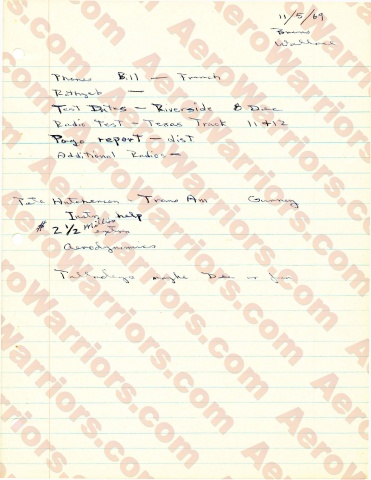 11/5/69
Wallace
Phones Bill — French
—
Test Dates — Riverside 8 Dec
Radio Test — Texas Track 11+12
Pogo report — dist
Additional Radios —
Pete Hutchenson - Trans Am Gurney
Instr help
$ 2 1/2 million extra
Aerodynamics
Talladega maybe Dec or Jan
AeroWarriors.com